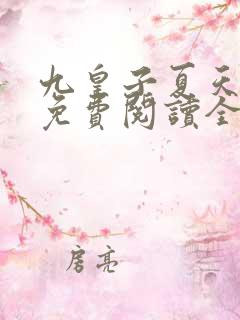 九皇子夏天
免費閱讀全
房亮